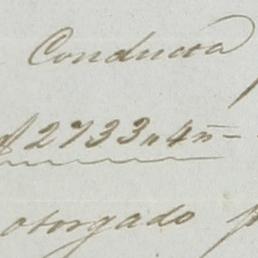 Conducta
2733,,4 n̄ –
otorgado p